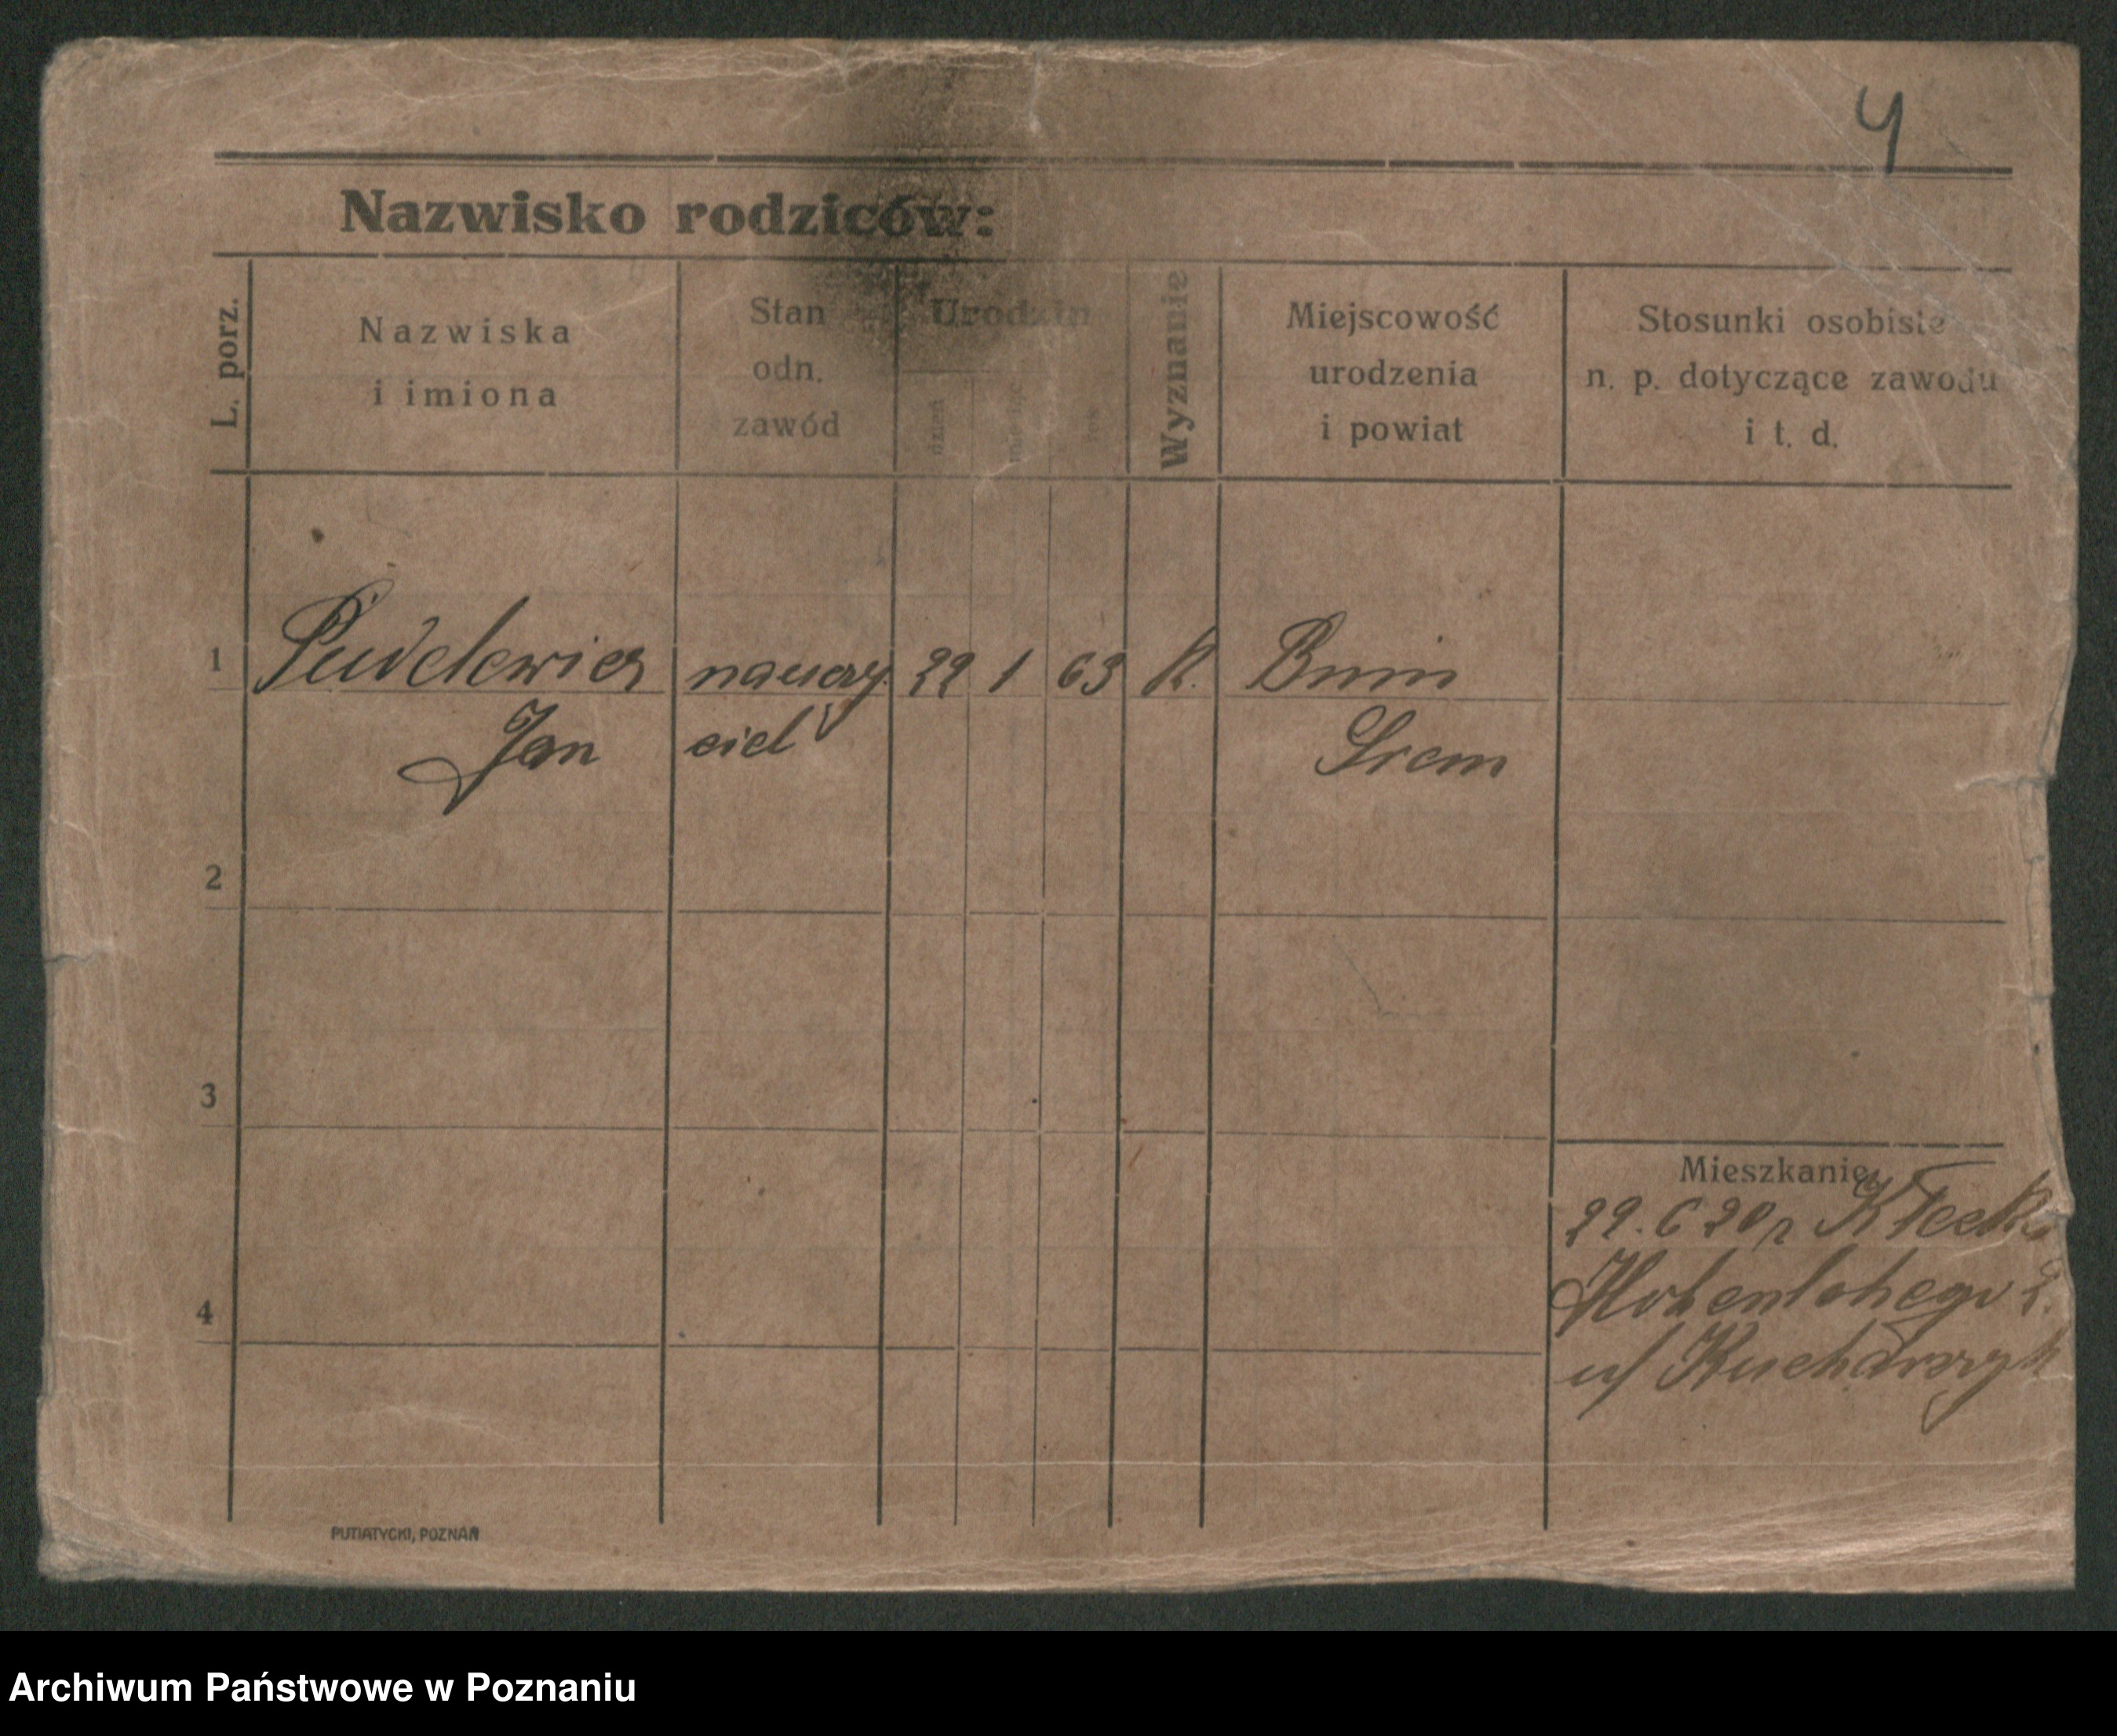 4
Nazwisko rodziców:
L. porz.
Nazwiska
i imiona
Stan
odn.
zawód
Urodzin
dzień
miesiąc
rok
Wyznanie
Miejscowość
urodzenia
i powiat
Stosunki osobiste
n. p. dotyczące zawodu
i t. d.
1 Pudelewicz nauczy 22 1 63 k. Bnin
Jan ciel Srem
2
3
Mieszkanie
22. 6 20 r Kłecko
4
Hohenlohego 2.
u/ Kucharczyk
PUTIATYCKI, POZNAŃ
Archiwum Państwowe w Poznaniu